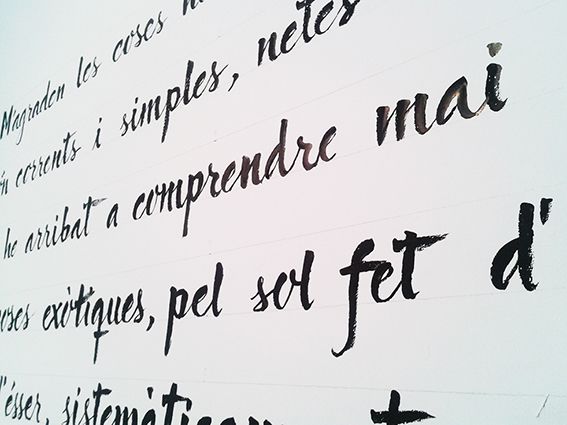 M'agraden les coses
corrents i simples, netes
he arribat a comprendre mai
coses exòtiques, pel sol fet d'
d'ésser,